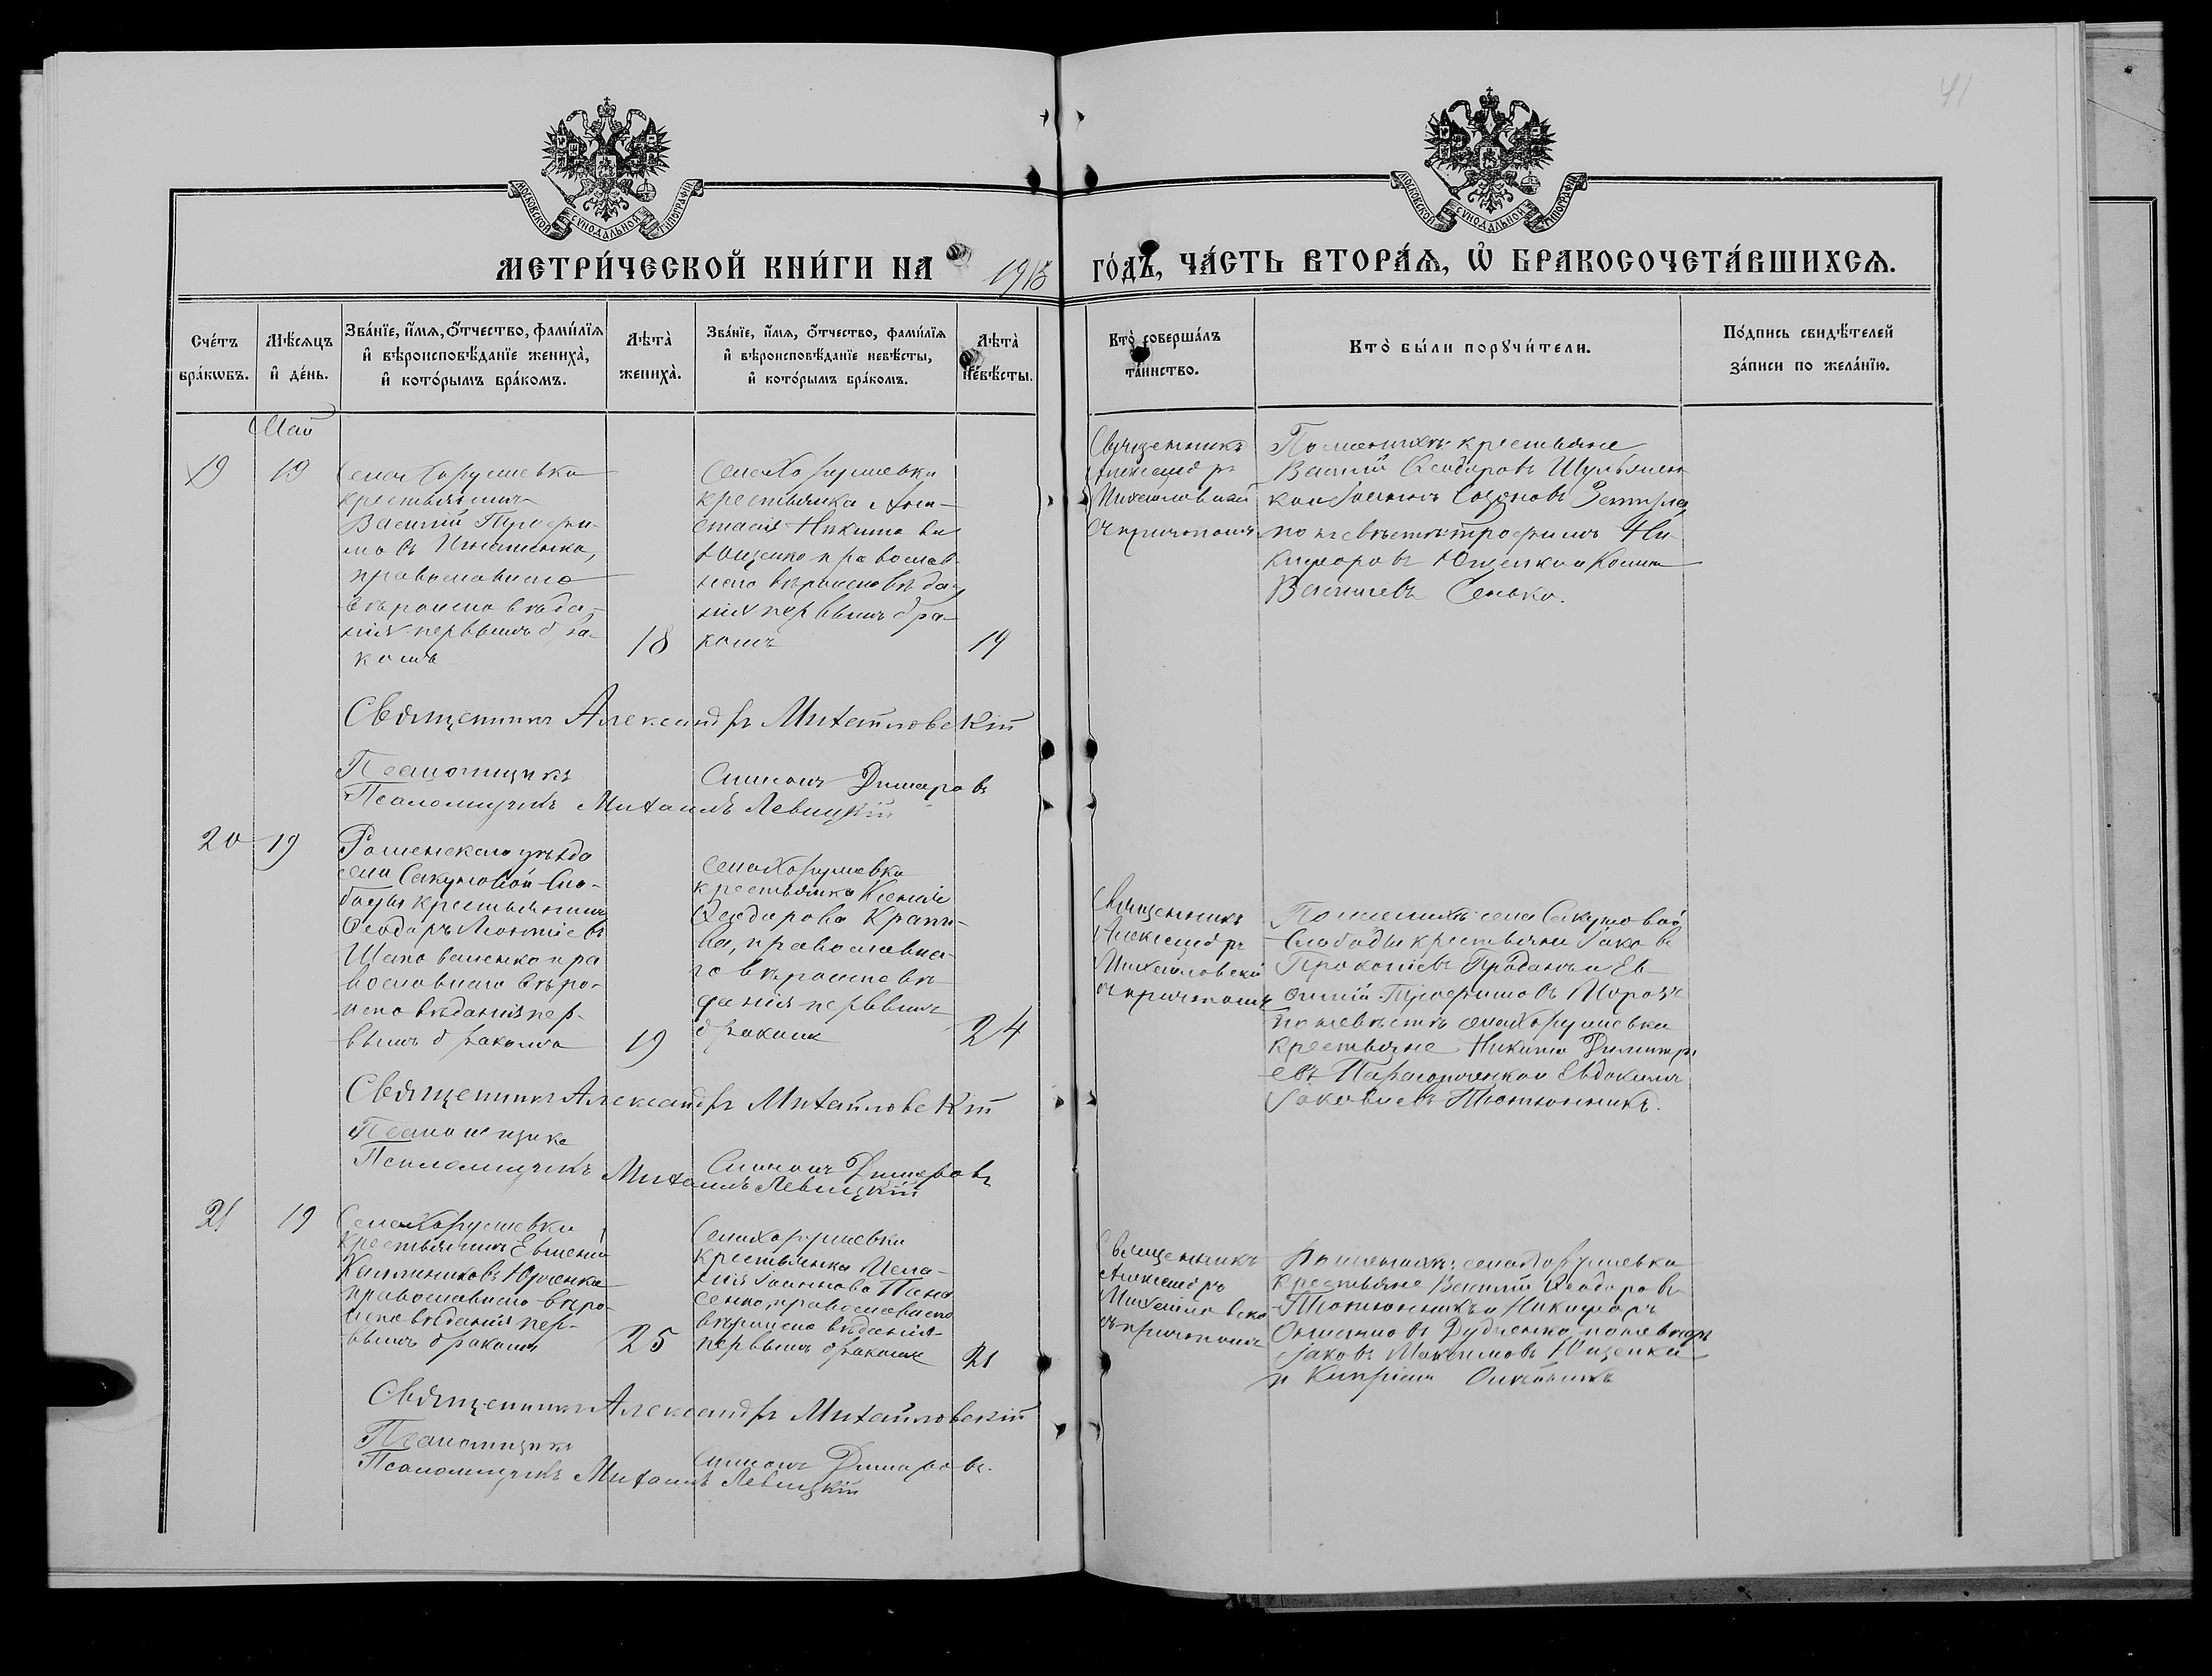 41
МОСКОВСКОЙ СУНОДАЛЬНОЙ ТИПОГРАФІИ
МОСКОВСКОЙ СУНОДАЛЬНОЙ ТИПОГРАФІИ
МЕТРИ́ЧЕСКОЙ КНИ́ГИ НА 1915 ГО́ДЪ, ЧА́СТЬ ВТОРА́Ѧ, Ѽ БРАКОСОЧЕТА́ВШИХСѦ.
Сче́тъ
бра́кѡвъ.
Мѣ́сѧцъ
и҆ де́нь.
Зва́нїе, и҆́мѧ, ѻ҆́тчество, фами́лїѧ
и҆ вѣроисповѣ́данїе жениха̀,
и҆ кото́рымъ бра́комъ.
Лѣта̀
жениха̀.
Зва́нїе, и҆́мѧ, ѻ҆́тчество, фами́лїѧ
и҆ вѣроисповѣ́данїе невѣ́сты,
и҆ кото́рымъ бра́комъ.
Лѣта̀
невѣ́сты.
Кто̀ соверша́лъ
та́инство.
Кто̀ бы́ли порꙋчи́тели.
По́дпись свидѣ́телей
за́писи по жела́нїю.
Май
19
19
Села Хоружевка
крестьянинъ
Василій
православнаго
вѣроисповѣда-
нія первымъ бра-
комъ
18
Села Хоружевки
крестьянка Ана-
стасія Никитина
Ющенко православ-
наго вѣроисповѣда
нія первымъ бра-
комъ
19
Священникъ
Александръ
Михайловскій
съ причтомъ
По женихѣ: крестьяне
Василій Ѳеодоровъ
по невѣстѣ Трофимъ Ни-
кифоровъ Ющенко и Косма
Васильевъ Сенько.
Священникъ Александръ Михайловскій
Псаломщикъ Симонъ Димаровъ
Псаломщикъ Михаилъ Левицкій
20
19
Роменскаго уѣзда
села Сакуновой Сло-
боды крестьянинъ
Ѳеодоръ Леонтіевъ
Шаповаленко пра
вославнаго вѣро-
исповѣданія пер-
вымъ бракомъ
19
Села Хоружевки
крестьянка Ксенія
Ѳеодорова Крапи-
ва, православна-
го вѣроисповѣ-
данія первымъ
бракомъ
24
Священникъ
Александръ
Михайловскій
съ причтомъ
По женихѣ села Сакуновой
Слободы крестьяне Іаковъ
Прокопіевъ Проданъ и Ев-
Морозъ
по невѣстѣ села Хоружевки
крестьяне Никита Димитрі
евъ и Евдокимъ
Іаковлевъ Тютюнникъ.
Священникъ Александръ Михайловскій
Псаломщикъ Симонъ Димаровъ
Псаломщикъ Михаилъ Левицкій
21
19
Села Хоружевки
крестьянинъ Евменій
Каллиниковъ Юрченко
православнаго вѣро-
исповѣданія пер-
вымъ бракомъ
25
Села Хоружевки
крестьянка Мела-
нія Іоаннова Пана
сенко, православнаго
вѣроисповѣданія
первымъ бракомъ
21
Священникъ
Александръ
Михайловскій
съ причтомъ
По женихѣ: села Хоружевки
крестьяне Василій Ѳеодоровъ
Тютюнникъ и Никифоръ
Дудченко, по невѣстѣ
Іаковъ Максимовъ Ющенко
и Кипріанъ
Священникъ Александръ Михайловскій
Псаломщикъ Симонъ Димаровъ.
Псаломщикъ Михаилъ Левицкій